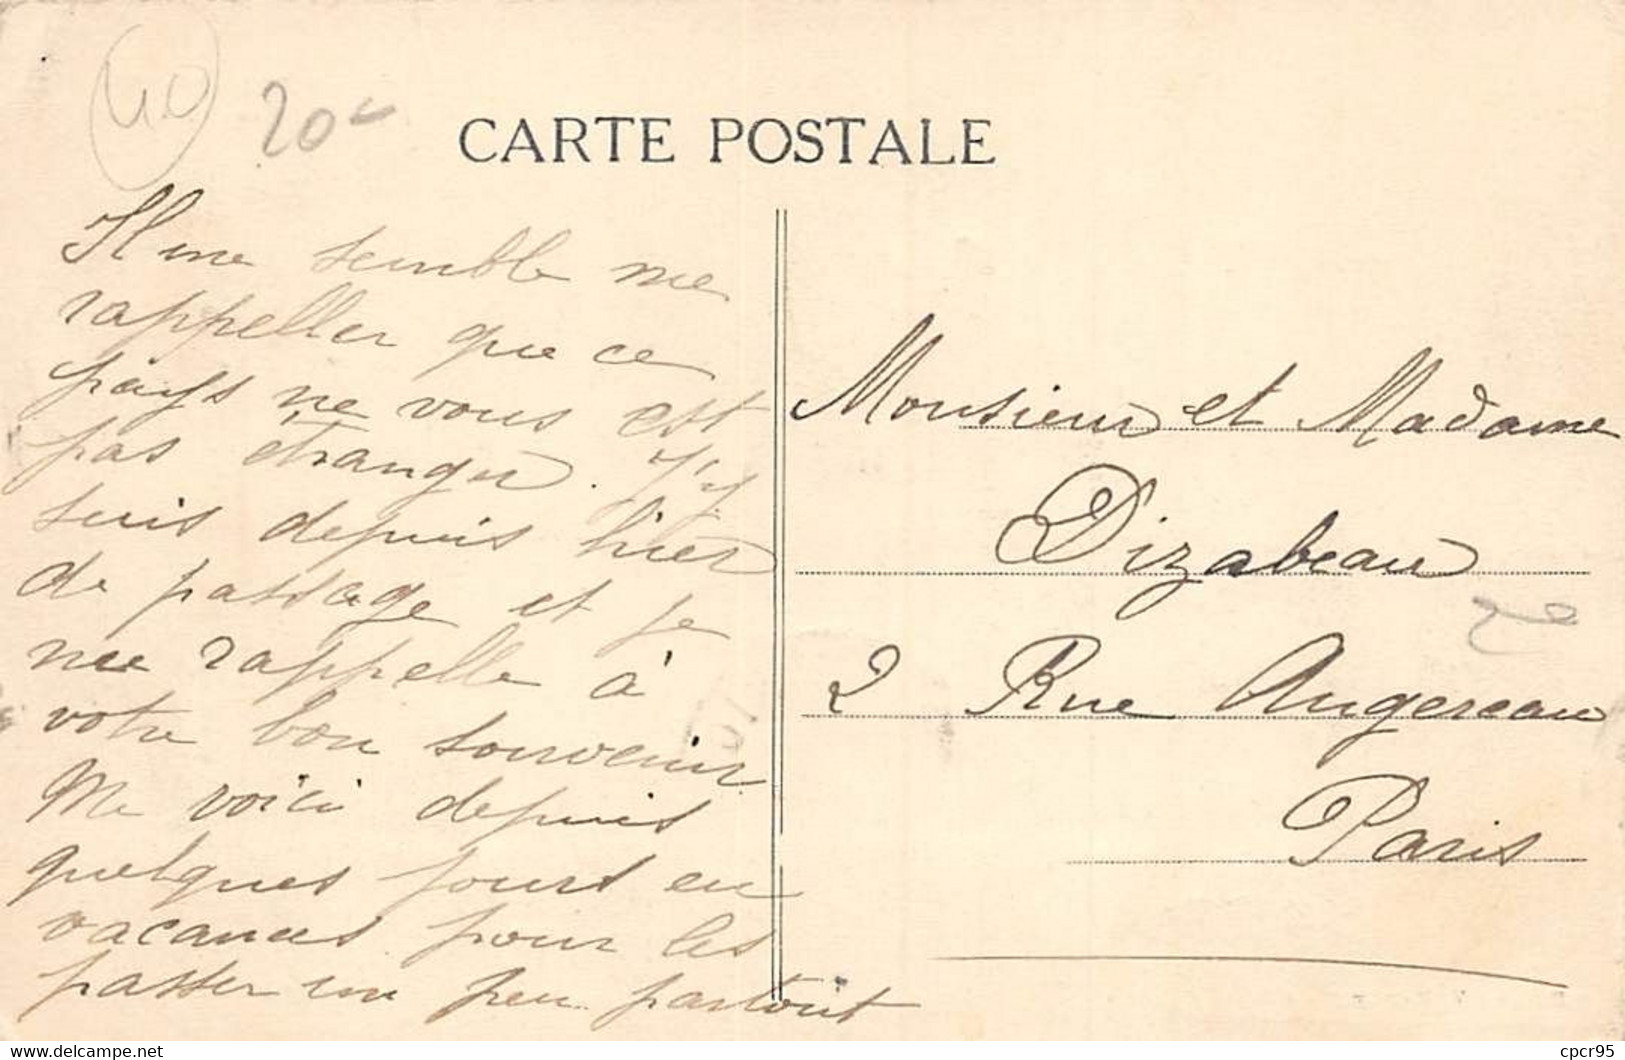 40
20
CARTE POSTALE
Il me semble me
rappeller que ce
pays ne vous est
pas étranger. J'y
suis depuis hier
de passage et je
me rappelle à
votre bon souvenir
Me voici depuis
quelques jours en
vacances pour les
passer un peu partout
Monsieur et Madame
Dizabeau
2 Rue Augereau
Paris
cpcr95